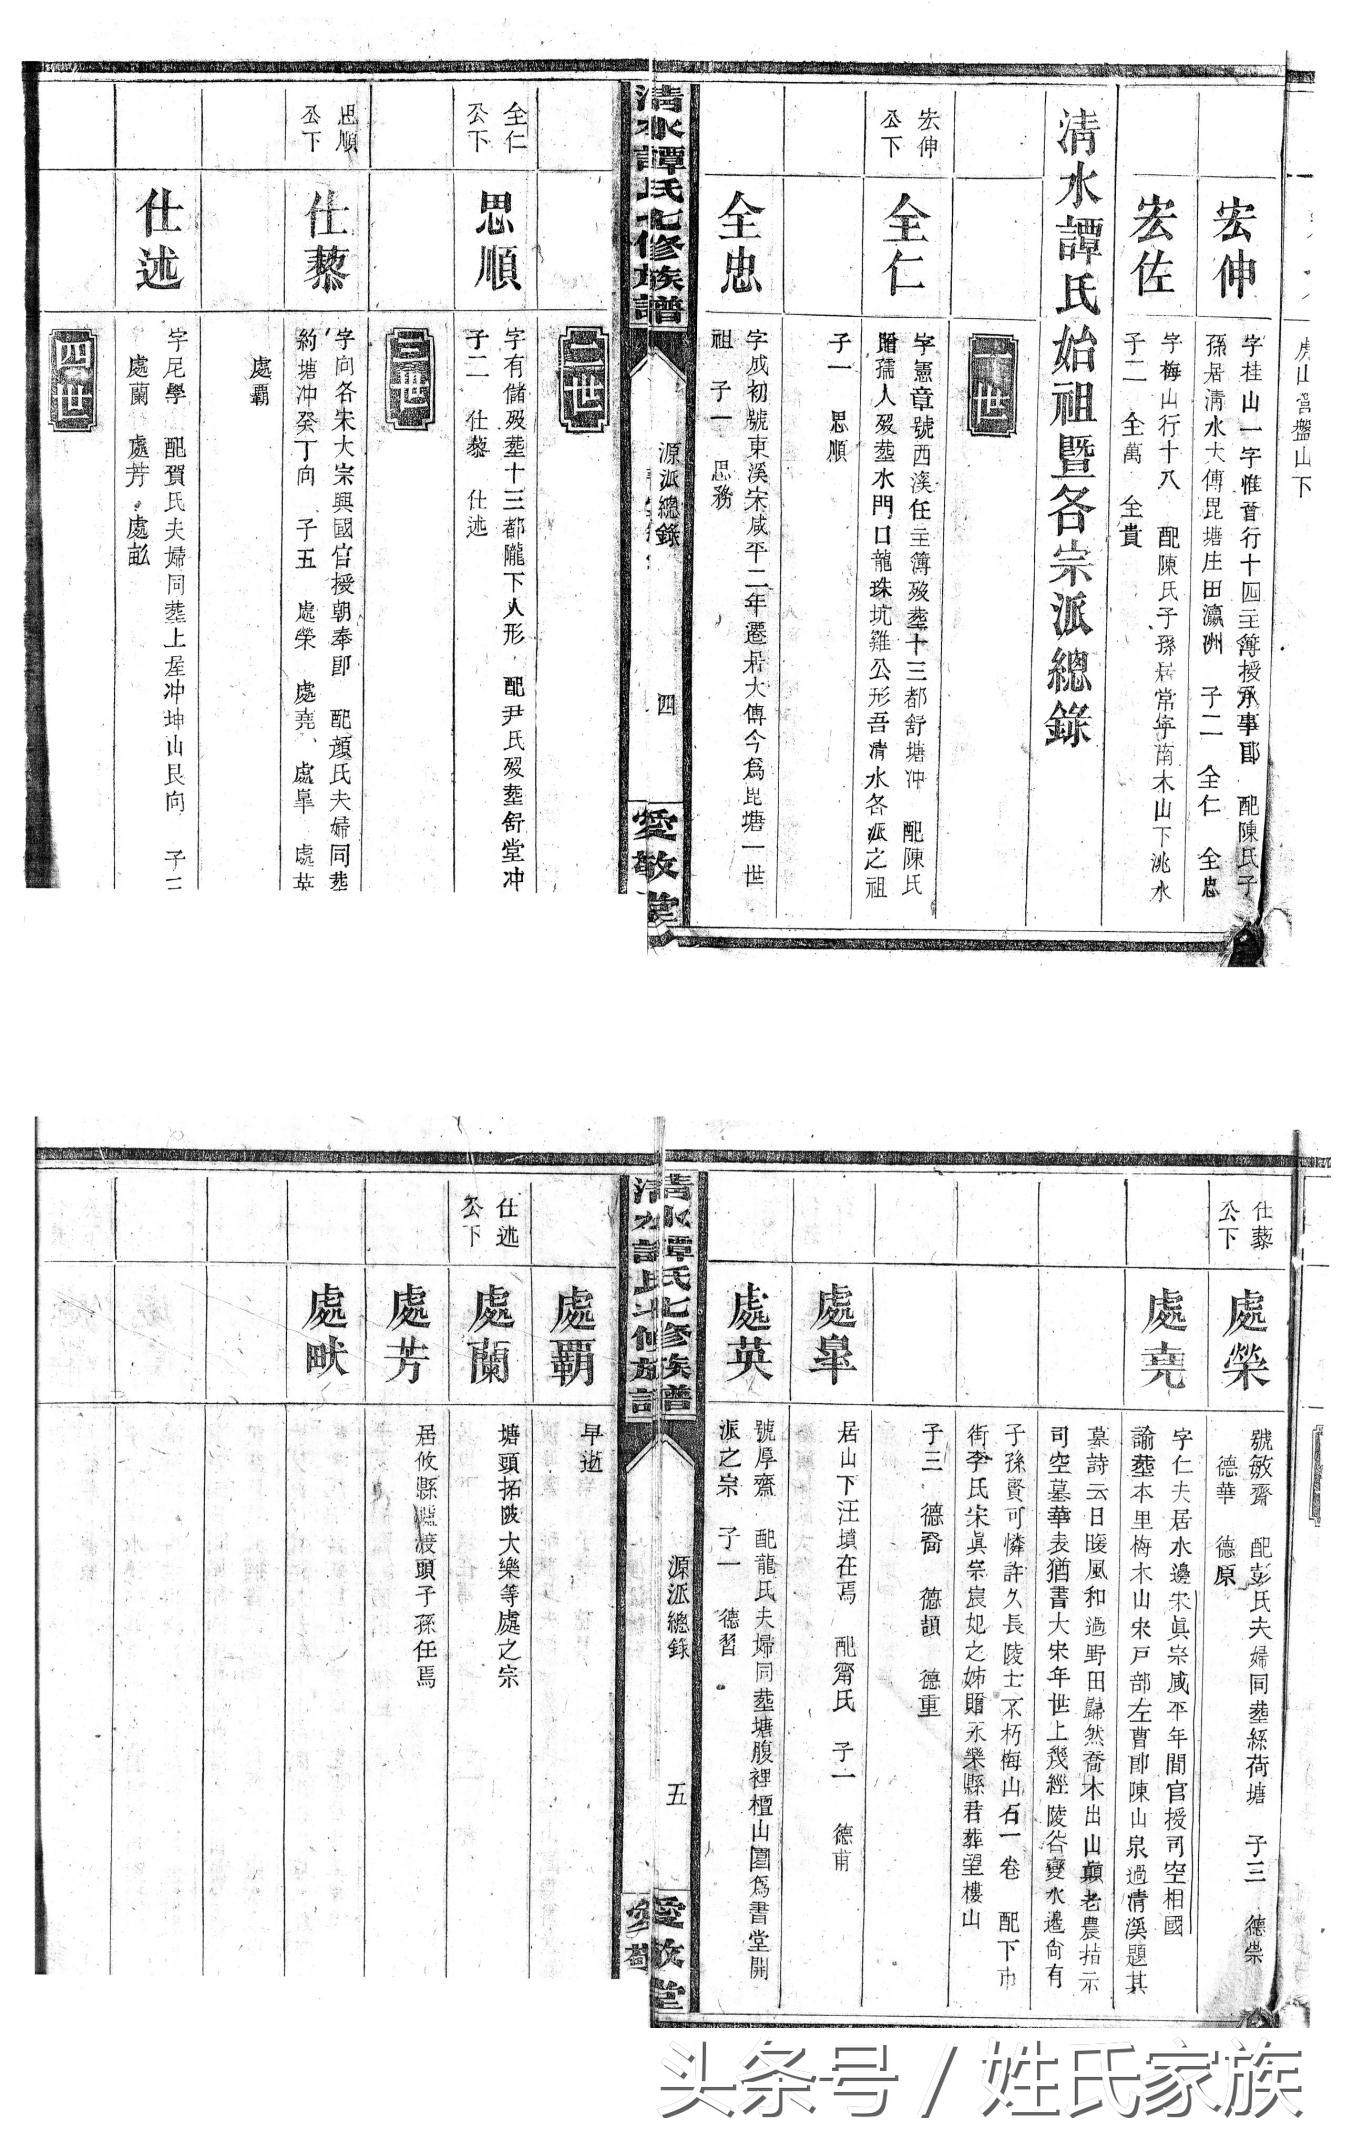 虎山营盤山下
宏伸
字桂山一字惟晉行十四主簿授承事郎 配陳氏子
孫居清水大傳毘塘庄田瀛洲 子二 全仁 全忠
宏佐
字梅山行十八 配陳氏子孫居常寧南木山下洮水
子二 全萬 全貴
清水譚氏始祖暨各宗派總錄
一世
宏伸
公下
全仁
字憲章號西溪任主簿歿塟十三都舒塘冲 配陳氏
贈孺人歿塟水門口龍珠坑雞公形吾清水各派之祖
子一 思順
全忠
字成初號東溪宋咸平二年遷居大傳今爲毘塘一世
祖 子一 思務
清水譚氏七修族譜
源派總錄
四
愛敬堂
二世
全仁
公下
思順
字有儲歿塟十三都隴下人形 配尹氏歿塟舒堂冲
子二 仕藜 仕述
三世
思順
公下
仕藜
字向各宋大宗興國官授朝奉郎 配顔氏夫婦同塟
約塘冲癸丁向 子五 處榮 處堯 處臯 處英
處覇
仕述
字尼學 配賀氏夫婦同塟上垕冲坤山艮向 子三
處蘭 處芳 處畆
四世
仕藜
公下
處榮
號敏齋 配彭氏夫婦同塟絲荷塘 子三 德崇
德華 德原
處堯
字仁夫居水邊宋眞宗咸平年間官授司空相國
諭塟本里梅木山宋戸部左曹郎陳山泉過清溪題其
墓詩云日暖風和過野田歸然喬木出山巔老農指示
司空墓華表猶書大宋年世上幾經陵谷變水邊尙有
子孫賢可憐許久長陵士不朽梅山石一卷 配下市
街李氏宋眞宗宸妃之姊贈永樂縣君葬望樓山
子三 德裔 德頡 德重
處臯
居山下汪墳在焉 配甯氏 子一 德甫
處英
號厚齋 配龍氏夫婦同塟塘腹裡檀山圍爲書堂開
派之宗 子一 德習
清水譚氏七修族譜
源派總錄
五
愛敬堂
處覇
早逝
仕述
公下
處蘭
塘頭拓陂大樂等處之宗
處芳
居攸縣渡頭子孫任焉
處畎
头条号 / 姓氏家族